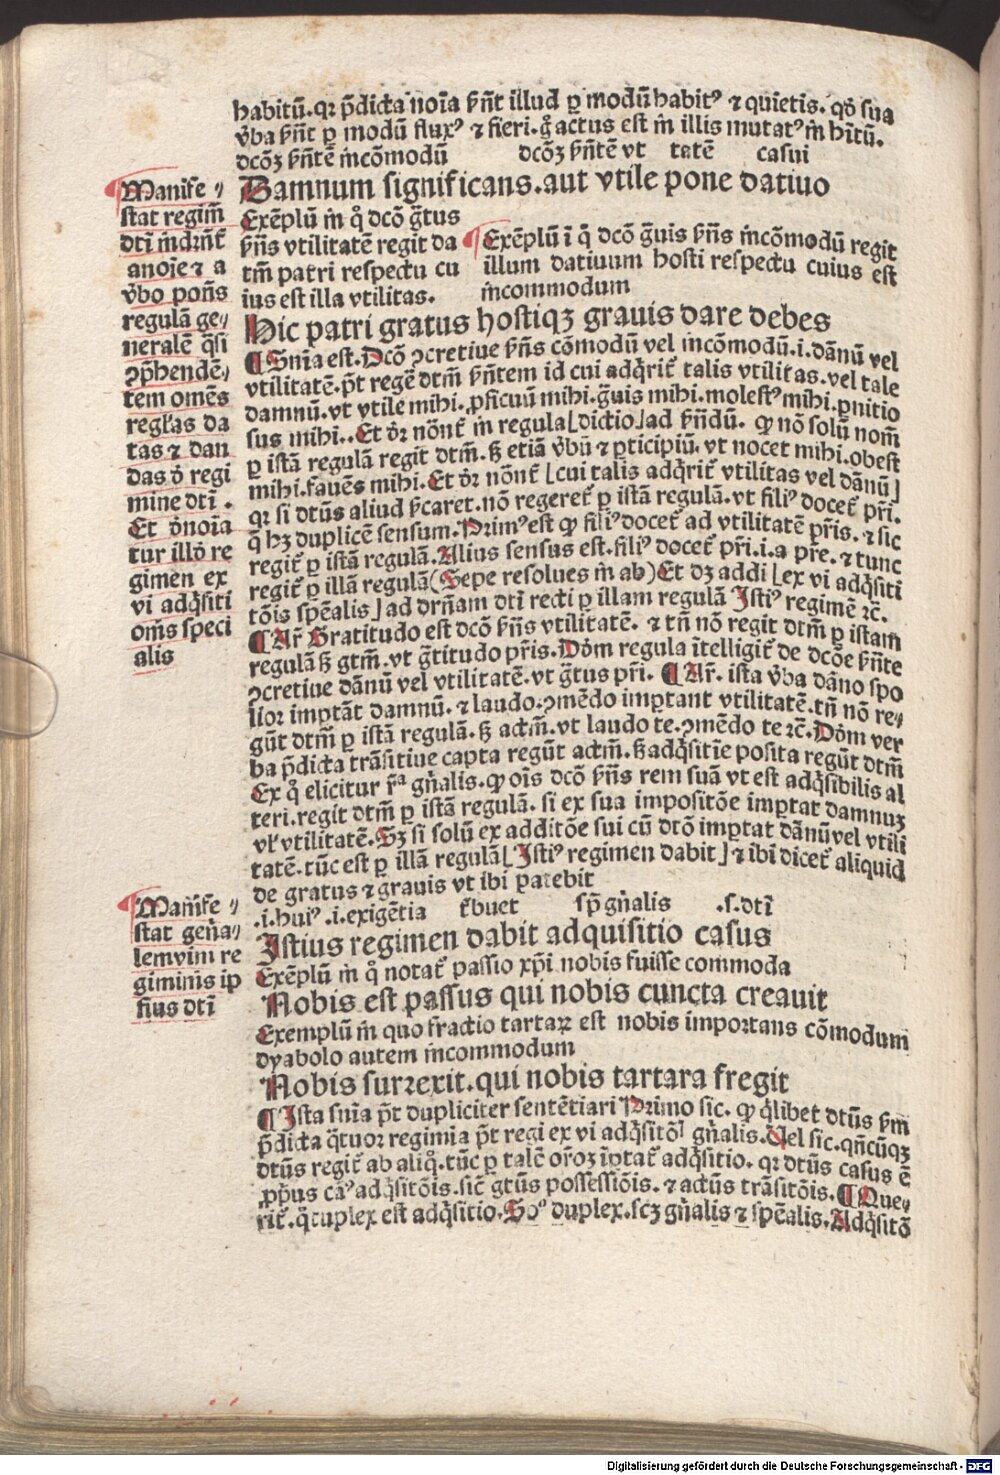 habitū. qꝛ p̄dicta noīa ẜn̄t illud ꝑ modū habitꝰ ⁊ quietis. qd̓ sua
v̓ba ẜn̄t ꝑ modū fluxꝰ ⁊ fieri. g̊ actus est in illis mutatꝰ in hītū.
dcōꝫ ẜn̄tē incōmodū dcōꝫ ẜn̄tē vt tatē casui
Damnum significans. aut vtile pone datiuo
Manife⸗
stat regim̄
dtī indrn̄t̓
anoīe ⁊ a
v̓bo pon̄s
regulā ge⸗
neralē q̄si
ꝯp̄hendē⸗
tem omēs
regl̓as da
tas ⁊ dan
das d̓ regi
mine dtī.
Et d̓noīa
tur illd̓ re
gimen ex
vi adq̄siti
om̄s speci
alis
Exēplū in q̊ dcō g̃tus
ẜn̄s vtilitatē regit da
tm̄ patri respectu cu
ius est illa vtilitas.
Exēplū ī q̊ dcō g̃uis ẜn̄s incōmodū regit
illum datiuum hosti respectu cuius est
incommodum
Hic patri gratus hostiqꝫ grauis dare debes
¶ Snīa est. Dcō ꝯcretiue ẜn̄s cōmodū vel incōmodū .i. dānū vel
vtilitatē. p̄t regē dtm̄ ẜn̄tem id cui adq̄rit̓ talis vtilitas. vel tale
damnū. vt vtile mihi. ꝓficuū mihi. g̃uis mihi. molestꝰ mihi. ꝑnitio
sus mihi.. Et dr̄ nōn̄t̓ in regula [dictio] ad ẜn̄dū. ꝙ nō solū nom̄
ꝑ istā regulā regit dtm̄. ẜꝫ etiā v̓bū ⁊ ꝑticipiū. vt nocet mihi. obest
mihi. fauēs mihi. Et dr̄ nōn̄t̓ [cui talis adq̄rit̓ vtilitas vel dānū]
qꝛ si dtūs aliud ẜcaret. nō regeret̓ ꝑ istā regulā. vt filiꝰ docet̓ pr̄i.
q̄ hꝫ duplicē sensum. Primꝰ est ꝙ filiꝰ docet̓ ad vtilitatē pr̄is. ⁊ sic
regit̓ ꝑ istā regulā. Alius sensus est. filiꝰ docet̓ pr̄i .i. a pr̄e. ⁊ tunc
regit̓ ꝑ illā regulā (Sepe resolues in ab) Et dꝫ addi [ex vi adq̄siti
tōis spēalis] ad drn̄am dtī recti ꝑ illam regulā Istiꝰ regimē ꝛc̄.
¶ Ar̄ Gratitudo est dcō ẜn̄s vtilitatē. ⁊ tn̄ nō regit dtm̄ ꝑ istam
regulā ẜꝫ gtm̄. vt g̃titudo pr̄is. Dōm regula ītelligit̓ de dcōe ẜn̄te
ꝯcretiue dānū vel vtilitatē. vt g̃tus pr̄i. ¶ Ar̄. ista v̓ba dāno spo
lior imꝑtāt damnū. ⁊ laudo. ꝯmēdo imꝑtant vtilitatē. tn̄ nō re⸗
gūt dtm̄ ꝑ istā regulā. ẜꝫ actm̄. vt laudo te. ꝯmēdo te ꝛc̄. Dōm ver
ba p̄dicta trāsitiue capta regūt actm̄. ẜꝫ adq̄sitīe posita regūt dtm̄
Ex q̊ elicitur r̄ᵃ gn̄alis. ꝙ oīs dcō ẜn̄s rem suā vt est adq̄sibilis al
teri. regit dtm̄ ꝑ istā regulā. si ex sua impositōe imꝑtat damnuꝫ
vl̓ vtilitatē. Sꝫ si solū ex additōe sui cū dtō imꝑtat dānū vel vtili
tatē. tūc est ꝑ illā regulā [Istiꝰ regimen dabit] ⁊ ibi dicet̓ aliquid
de gratus ⁊ grauis vt ibi patebit
Manife⸗
stat gen̄a⸗
lem vim re
giminis ip
sius dtī
.i. huiꝰ .i. exigētia t̓buet sp̄ gn̄alis .s. dtī
Istius regimen dabit adquisitio casus
Exēplū in q̊ notat̓ passio xp̄i nobis fuisse commoda
Nobis est passus qui nobis cuncta creauit
Exemplū in quo fractio tartaꝝ est nobis importans cōmodum
dyabolo autem incommodum
Nobis surrexit. qui nobis tartara fregit
¶ Ista snīa p̄t dupliciter sentētiari Primo sic. ꝙ q̄libet dtūs ẜm
p̄dicta q̄tuor regimīa p̄t regi ex vi adq̄sitōī gn̄alis. Uel sic. qn̄cūqꝫ
dtūs regit̓ ab aliq̊. tūc ꝑ talē or̄oꝫ īꝑtat̓ adq̄sitio. qꝛ dtūs casus ē
ꝓpr̄us cāꝰ adq̄sitōis. sic̄ gtūs possessiōis. ⁊ actūs trāsitōis. ¶ Que⸗
rit̓. q̄tuplex est adq̄sitio. Soᵒ duplex. scꝫ gn̄alis ⁊ spēalis. Adq̄sitō
Digitalisierung gefördert durch die Deutsche Forschungsgemeinschaft - DFG